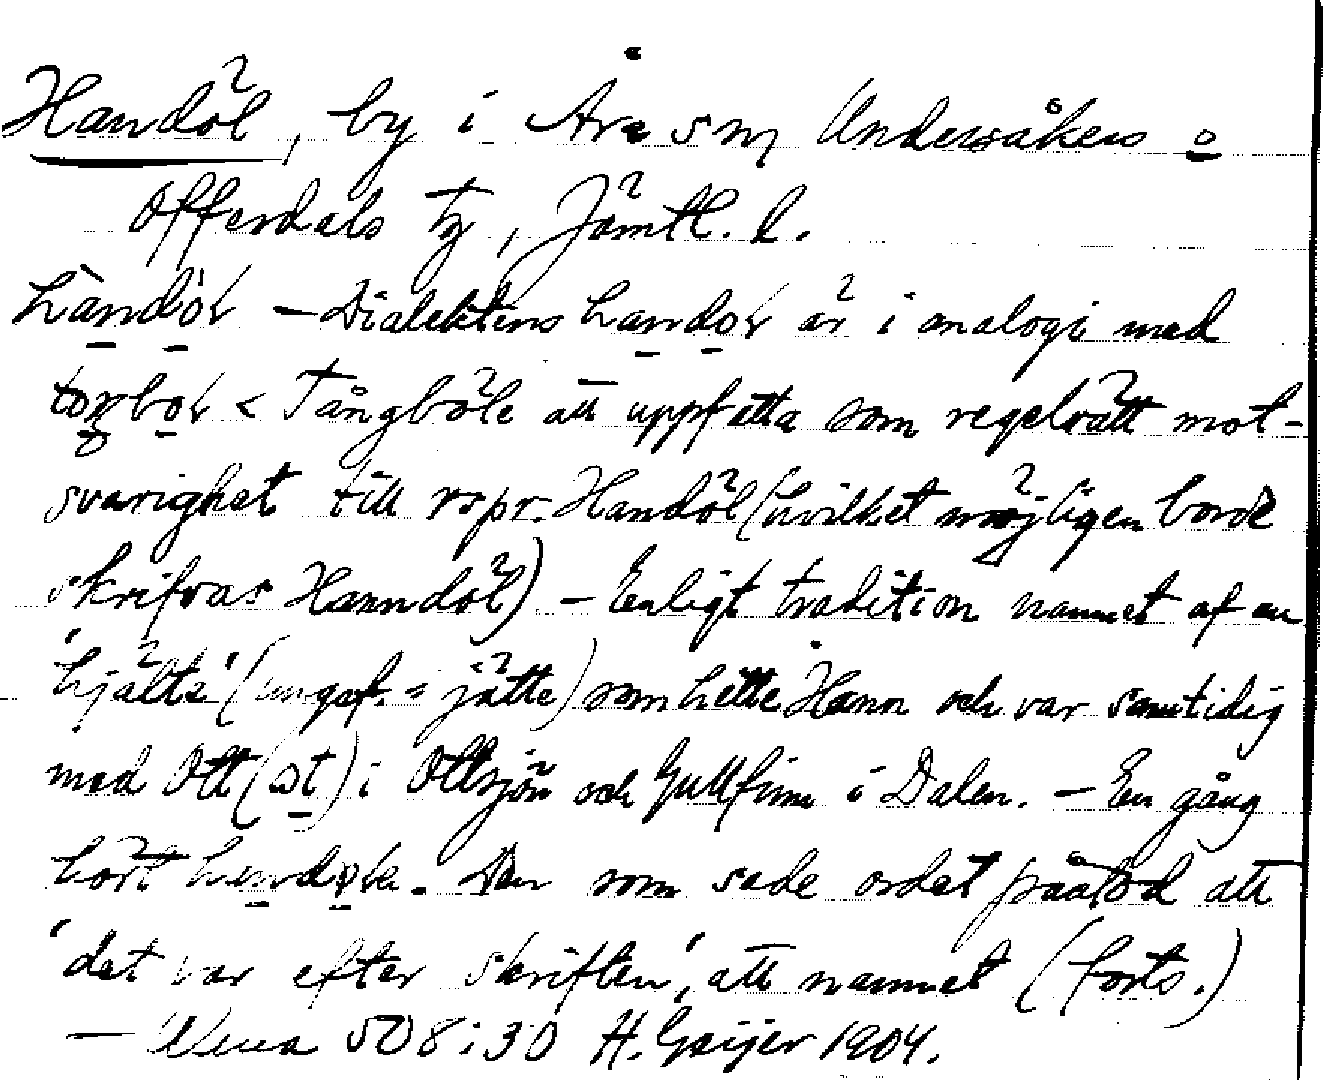 Handöl, by i Åre sn, Undersåkers o
Offerdals tg, Jämtl. l.
handöl – Dialektens handol är i analogi med
tọŋbol < Tångböle att uppfatta som regelrätt mot-
svarighet till rspr. Handöl (hvilket möjligen borde
skrifvas Hanndöl) – Enligt tradition namnet af en
'hjälte' (ungef. = jätte) som hette Hann och var samtidig
med Ott (ot) i Ottsjön och Gullfinn i Dalen. – En gång
hört . Den som sade ordet påstod att
'det var efter skriften', att namnet (forts.)
– 508:30 H. Geijer 1904.